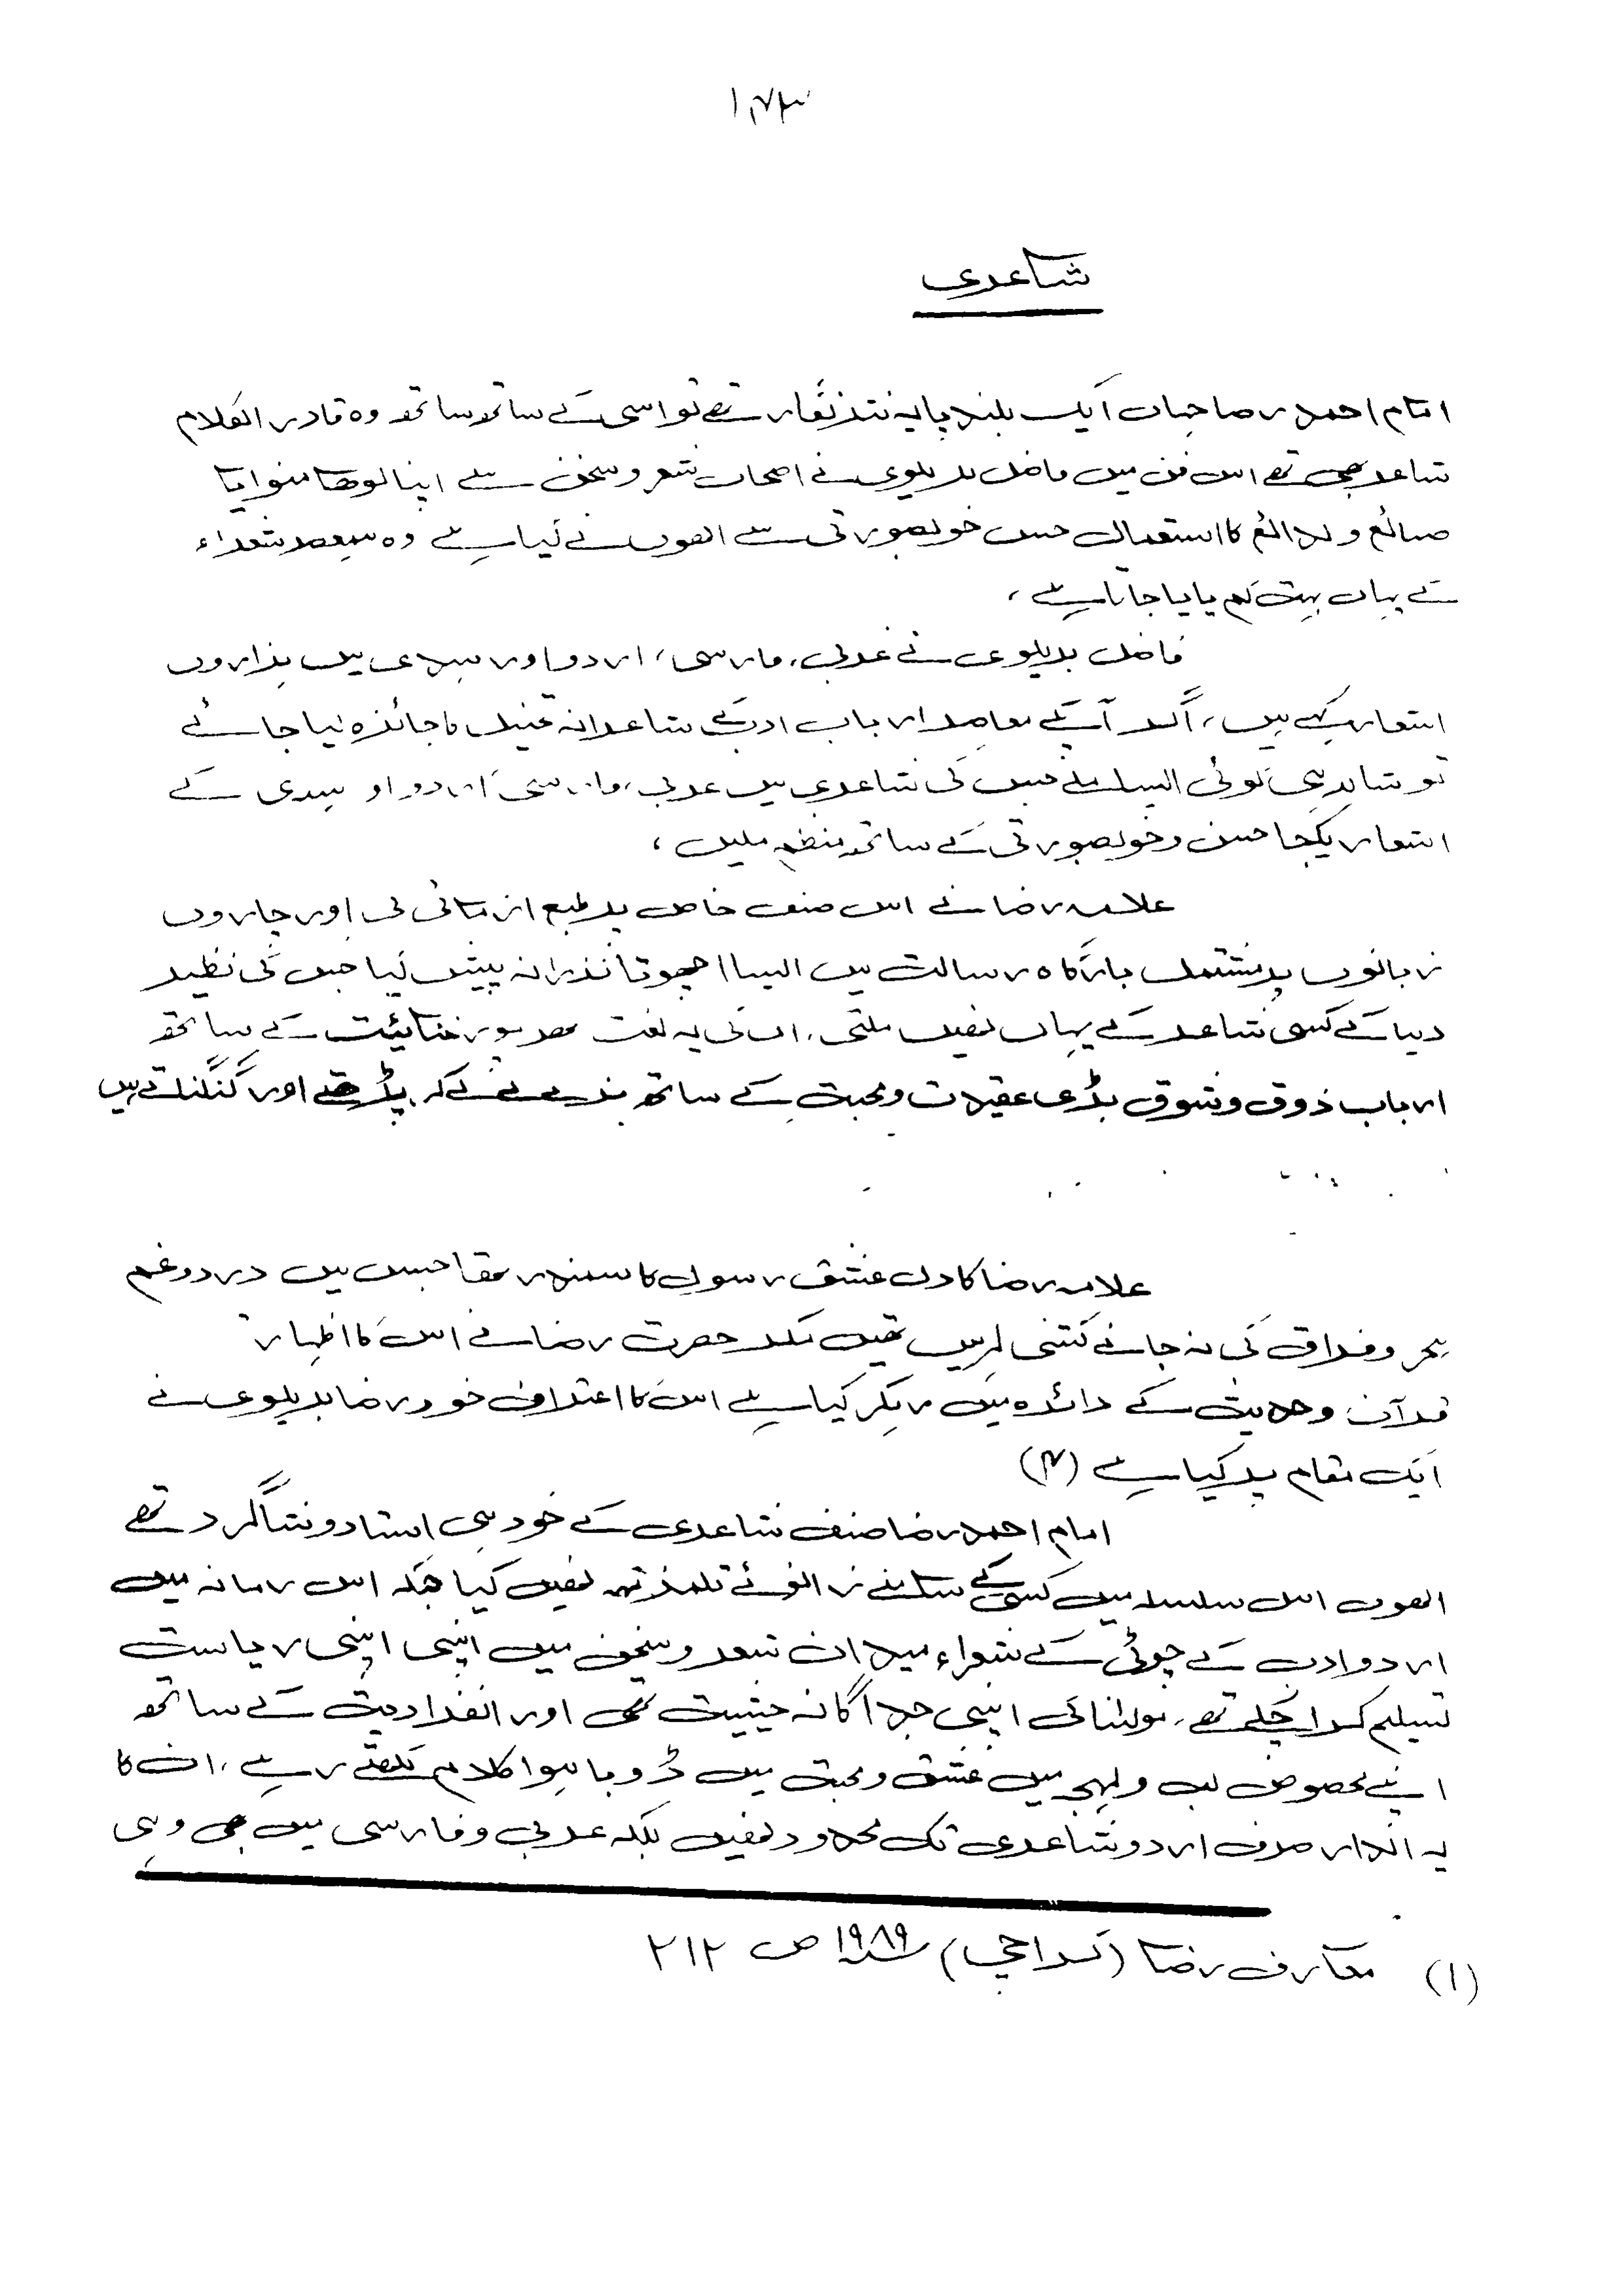 ۱۷۳
شاعری
امام احمد رضا جہاں ایک بلند پایہ نثر نگار تھے تو اسی کے ساتھ ساتھ وہ قادر الکلام
شاعر بھی تھے اس فن میں فاضل بریلوی نے اصحاب شعر و سخن سے اپنا لوھا منوایا
صنائع و بدائع کا استعمال جس خوبصورتی سے انھوں نے کیا ہے وہ ہمعصر شعراء
کے یہاں بہت کم پایا جاتا ہے ،
فاضل بریلوی نے عربی، فارسی، اردو اور ہندی میں ہزاروں
اشعار کہے ہیں، اگر آپ کے معاصر ارباب ادب کے شاعرانہ تخیل کا جائزہ لیا جائے
تو شاید ہی کوئی ایسا ملے جس کی شاعری میں عربی، فارسی اردو او ہندی کے
اشعار یکجا حسن و خوبصورتی کے ساتھ منظم ملیں ،
علامہ رضا نے اس صنف خاص پر طبع ازمائی کی اور چاروں
زبانوں پر مشتمل بارگاہ رسالت میں ایسا اچھوتا نذرانہ پیش کیا جس کی نظیر
دنیا کے کسی شاعر کے یہاں نھیں ملتی، ان کی یہ نعت بھرپور غنائیت کے ساتھ
ارباب ذوق و شوق بڑی عقیدت و محبت کے ساتھ پڑھتے اور گنگناتے ہیں
علامہ رضا کا دل عشق رسول کا سمندر تھا جس میں درد و غم
ہجر و فراق کی نہ جانے کتنی لہریں تھیں مگر حضرت رضا نے اس کا اظہار
قرآن و حدیث کے دائرہ میں رہکر کیا ہے اس کا اعتراف خود رضا بریلوی نے
ایک مقام پر کیا ہے
امام احمد رضا صنف شاعری کے خود ہی استاد و شاگرد تھے
انھوں اس سلسلہ میں کسی کے سامنے زانوئے تلمذ تہہ نھیں کیا جبکہ اس زمانہ میں
اردو ادب کے چوٹی کے شعراء میدان شعر و سخن میں اپنی اپنی ریاست
تسلیم کرا چکے تھے، مولانا کی اپنی جداگانہ حیثیت تھی اور انفرادیت کے ساتھ
اپنے مخصوص لب و لہجہ میں عشق و محبت میں ڈوبا ہوا کلام لکھتے رہے ، ان کا
یہ انداز صرف اردو شاعری تک محدود نھیں بلکہ عربی و فارسی میں بھی وہی
(۱) معارف رضا (کراچی) ۱۹۸۹ ص ۲۱۲